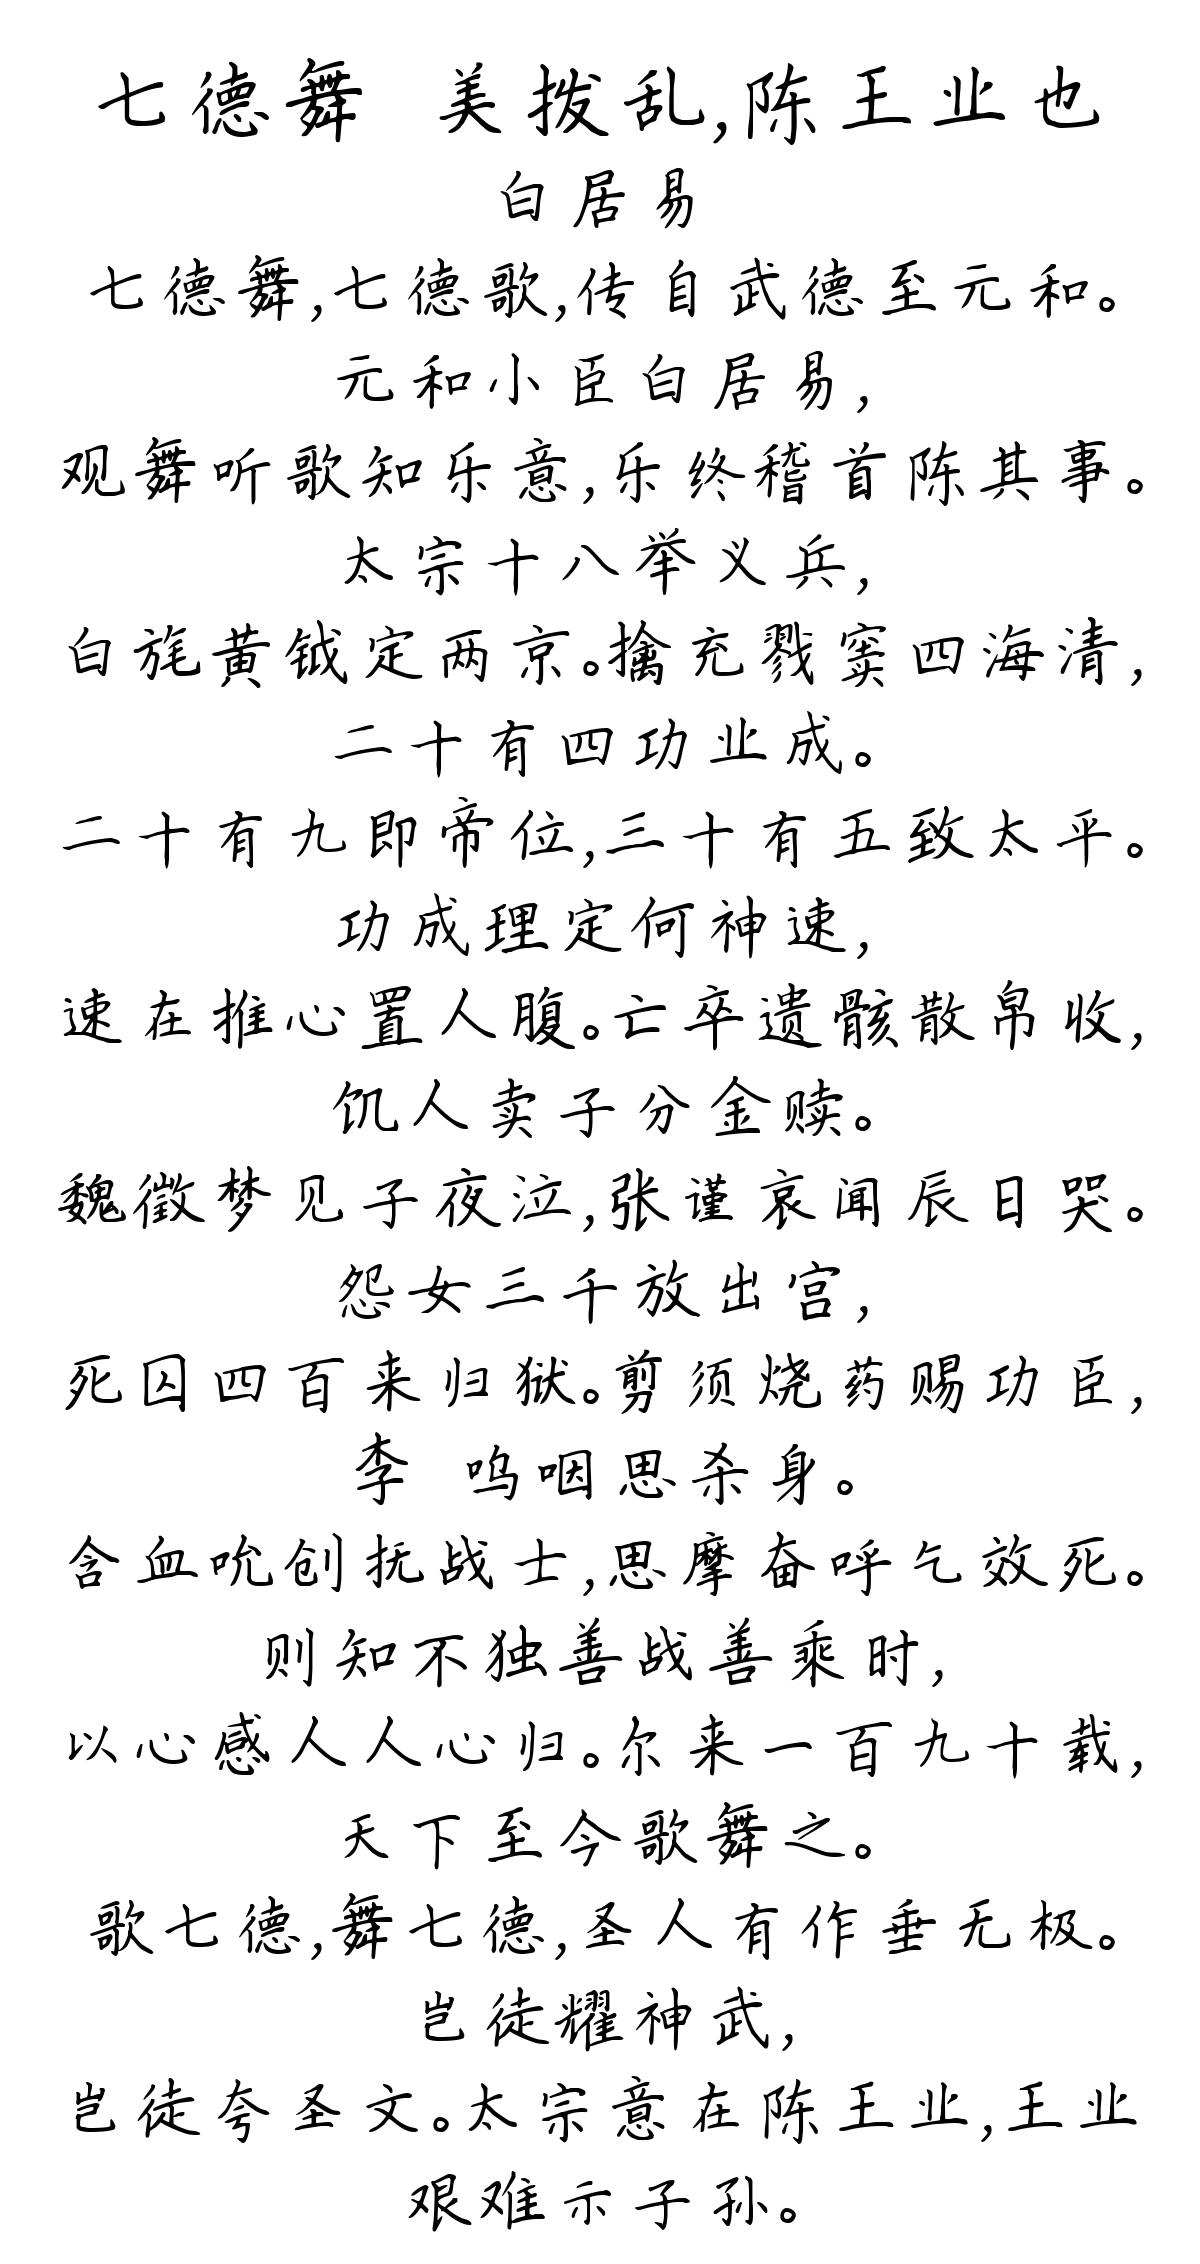 七德舞 美拨乱,陈王业也
白居易
七德舞,七德歌,传自武德至元和。
元和小臣白居易,
观舞听歌知乐意,乐终稽首陈其事。
太宗十八举义兵,
白旄黄钺定两京。擒充戮窦四海清,
二十有四功业成。
二十有九即帝位,三十有五致太平。
功成理定何神速,
速在推心置人腹。亡卒遗骸散帛收,
饥人卖子分金赎。
魏徵梦见子夜泣,张谨哀闻辰日哭。
怨女三千放出宫,
死囚四百来归狱。剪须烧药赐功臣,
李 呜咽思杀身。
含血吮创抚战士,思摩奋呼乞效死。
则知不独善战善乘时,
以心感人人心归。尔来一百九十载,
天下至今歌舞之。
歌七德,舞七德,圣人有作垂无极。
岂徒耀神武,
岂徒夸圣文。太宗意在陈王业,王业
艰难示子孙。